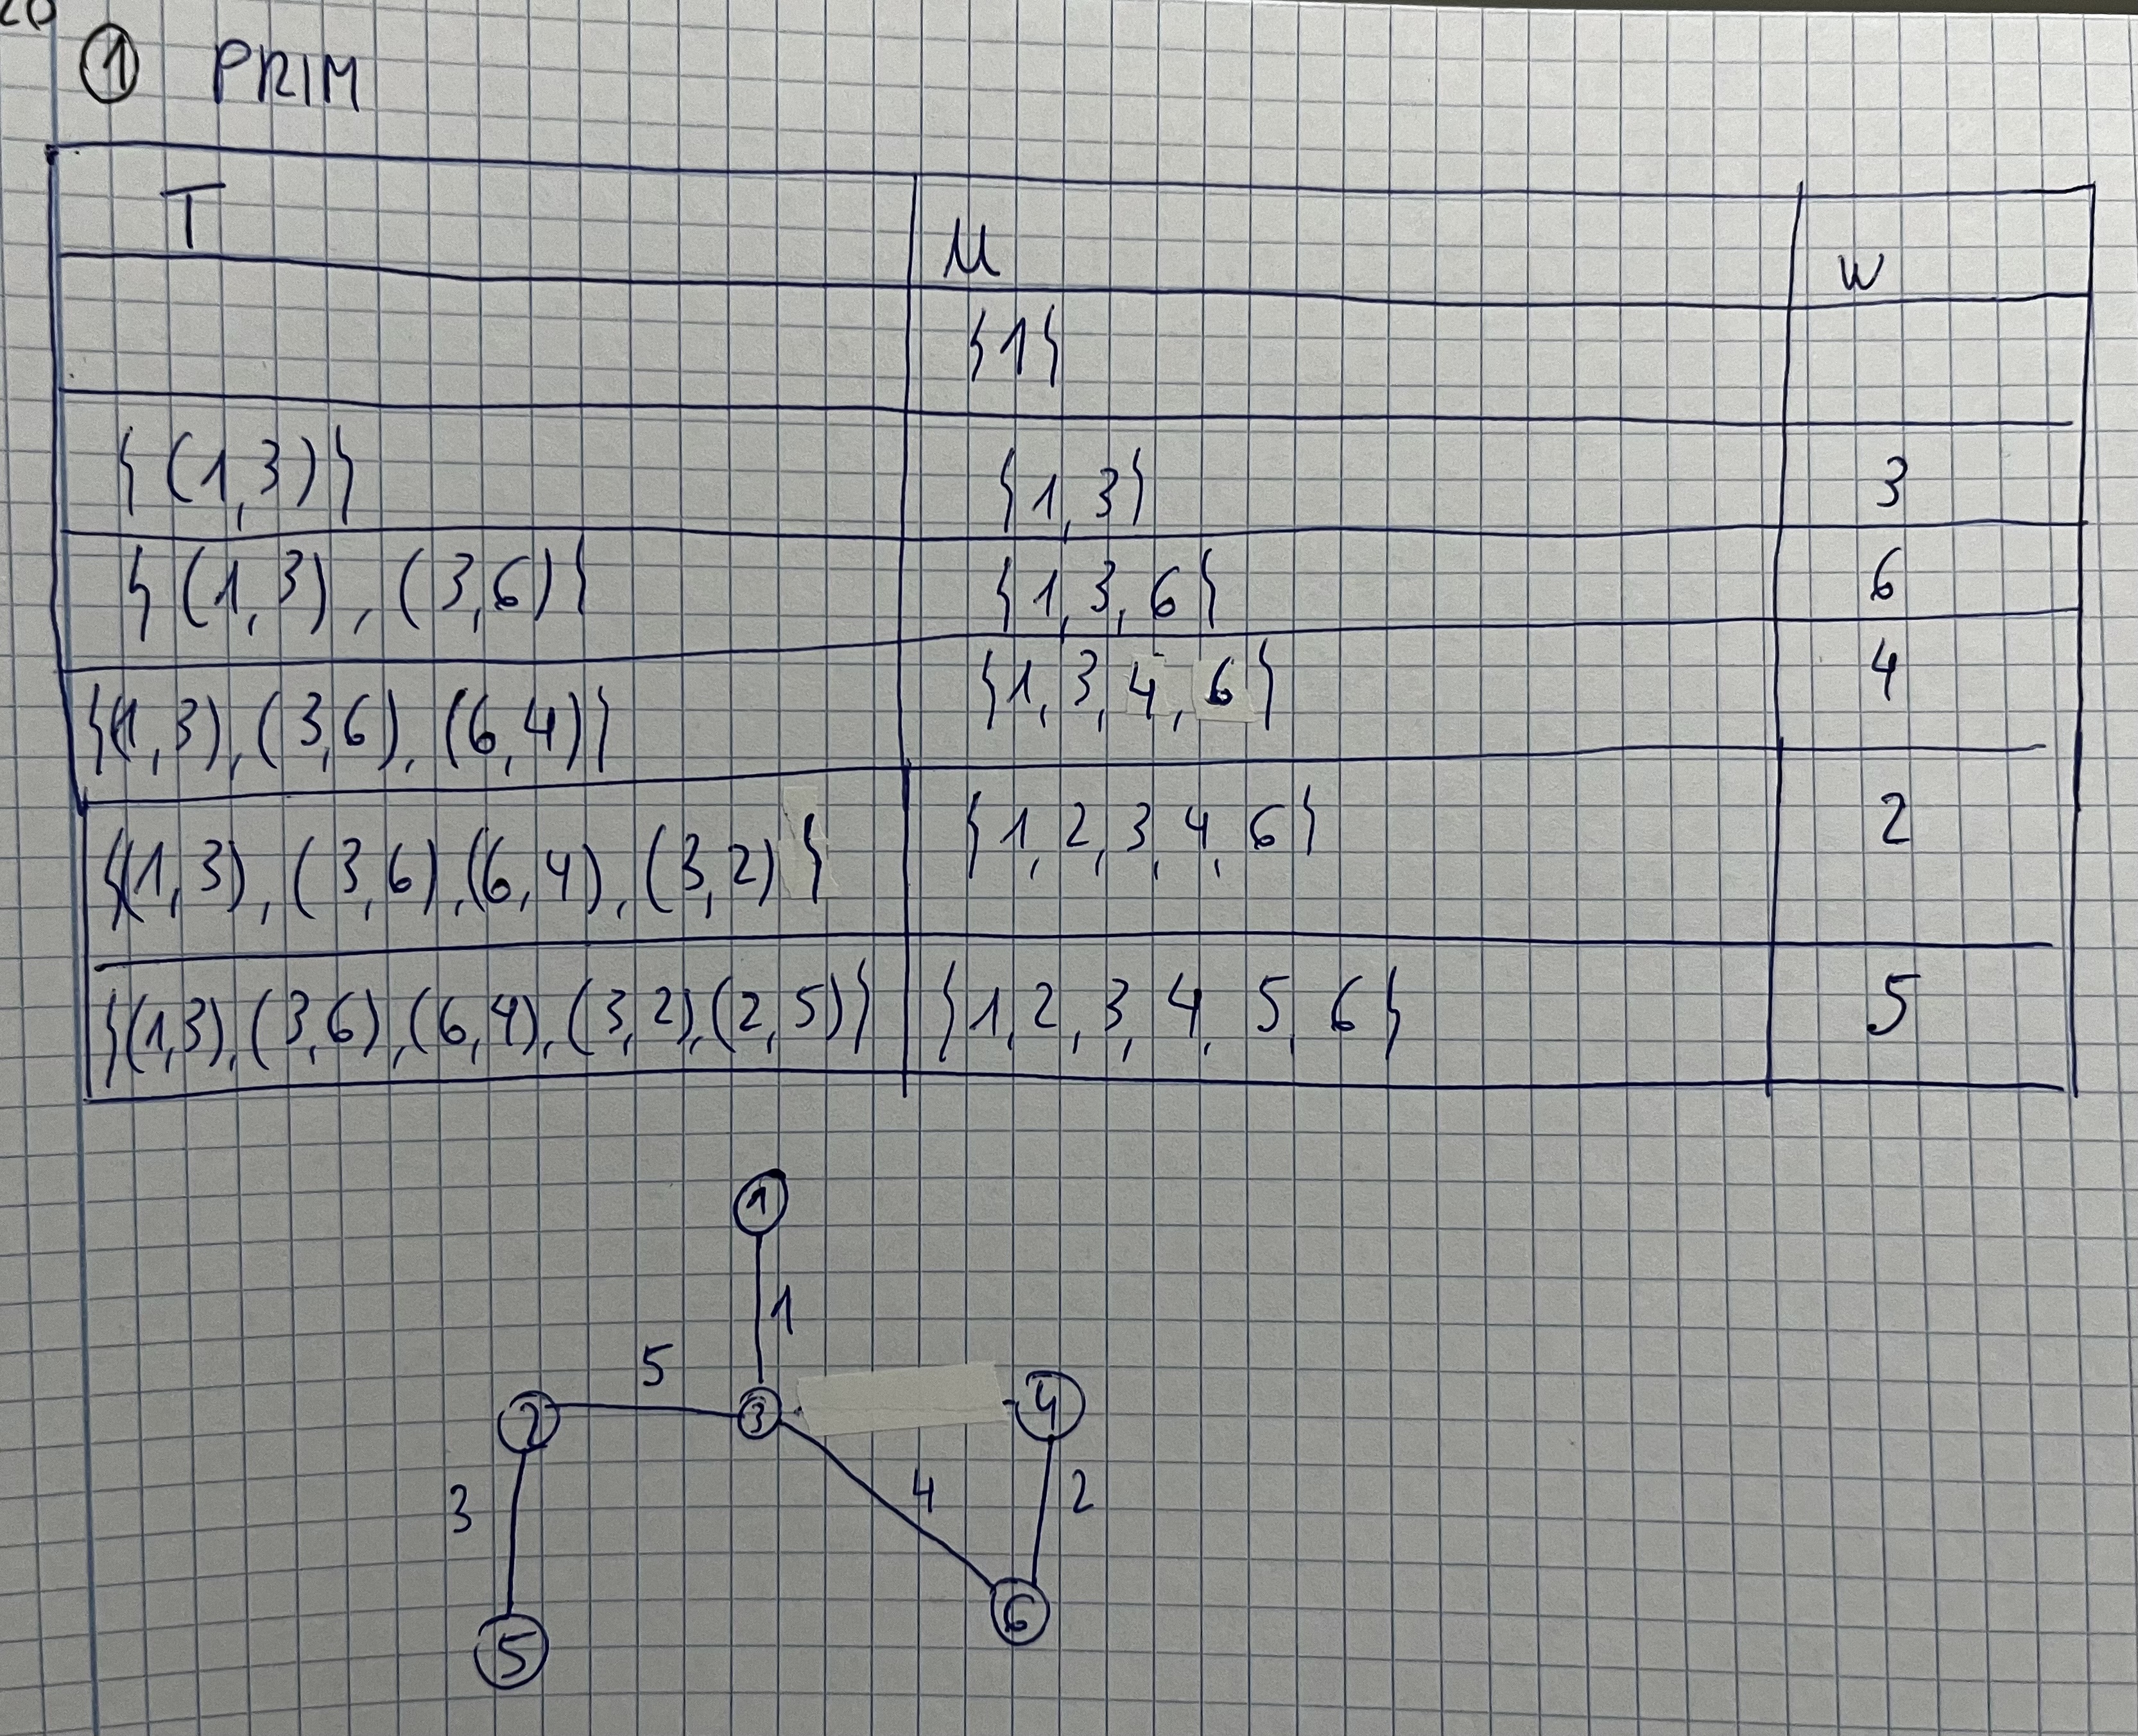 ① PRIM
T U w
{1}
{(1,3)} {1,3} 3
{(1,3),(3,6)} {1,3,6} 6
{(1,3),(3,6),(6,4)} {1,3,4,6} 4
{(1,3),(3,6),(6,4),(3,2)} {1,2,3,4,6} 2
{(1,3),(3,6),(6,4),(3,2),(2,5)} {1,2,3,4,5,6} 5
1
1
5
2 3 4
3 4 2
6
5